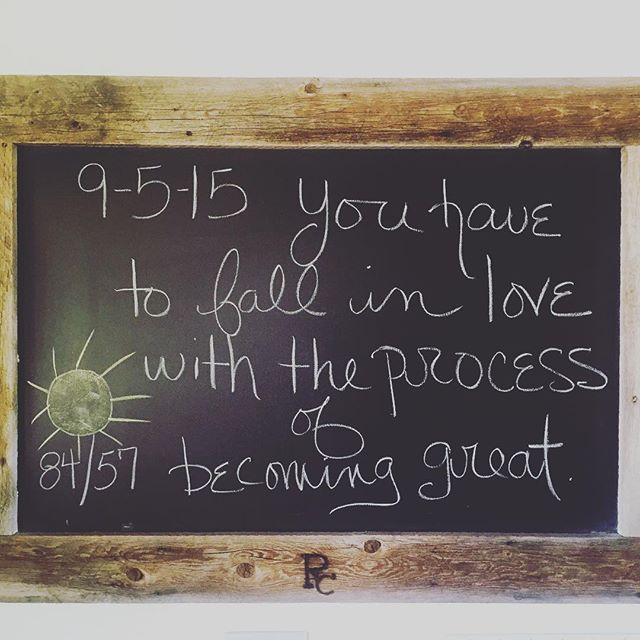 9-5-15 You have
to fall in love
with the process
of
84/57 becoming great.
PC